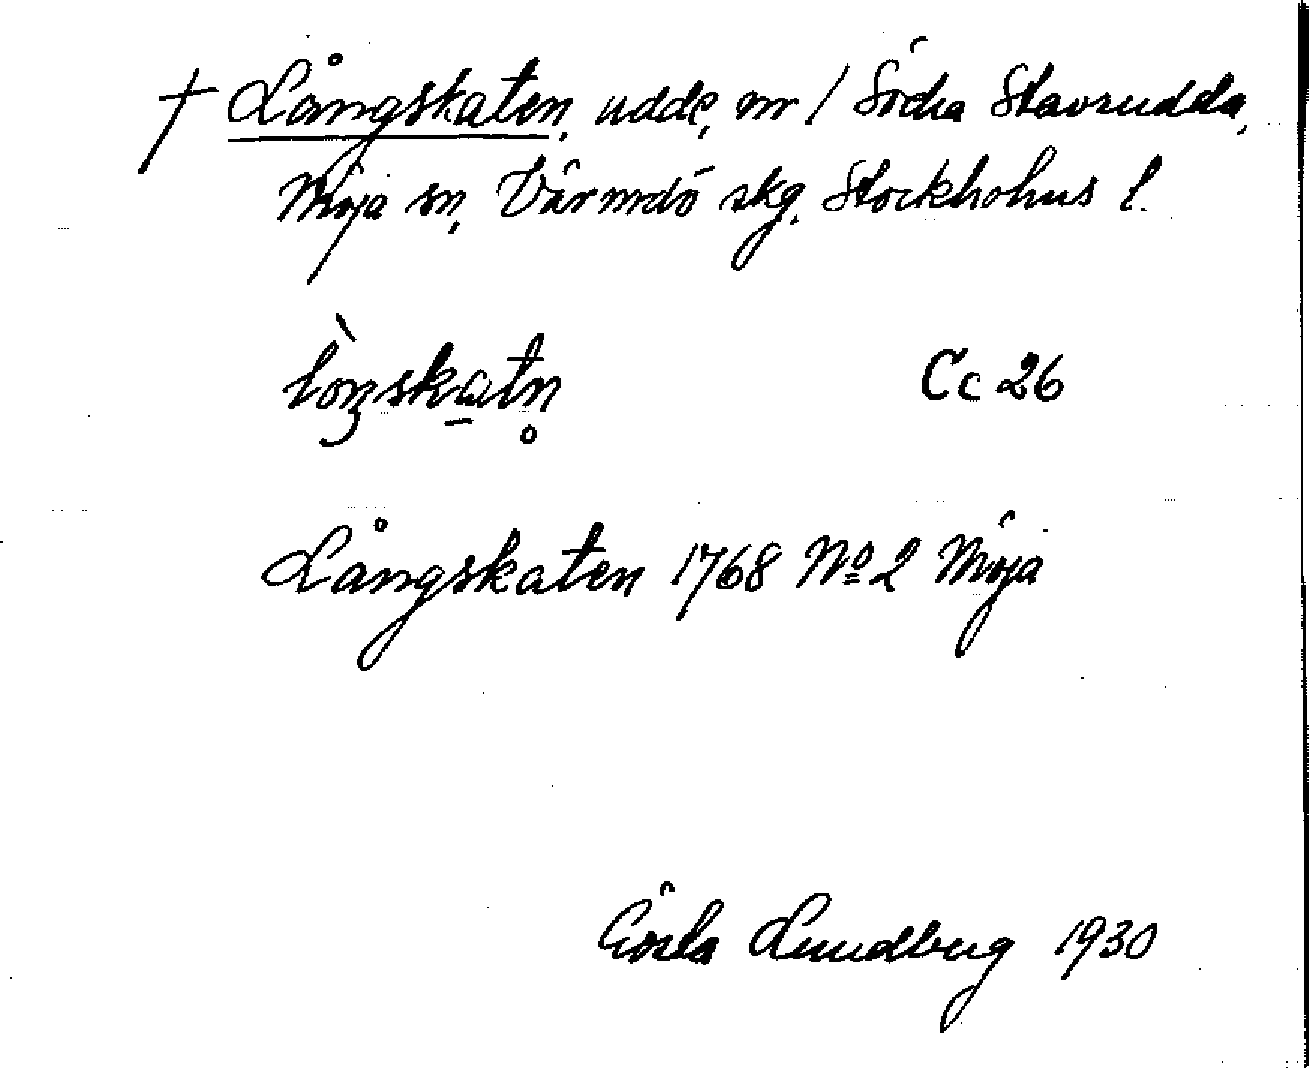 † Långskaten, udde, nr 1 Södra Stavsudda,
Möja sn, Värmdö skg. Stockholms l.
lòŋskatn̥ Cc 26
Långskaten 1768 No 2 Möja
Gösta Lundberg 1930